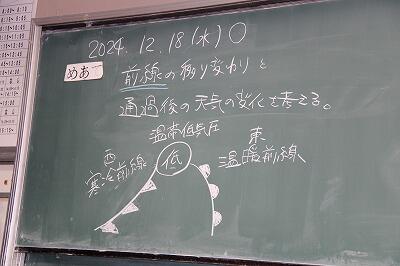 2024.12.18(水)○
めあて
前線の移り変わりと
通過後の天気の変化を考える。
温帯低気圧
西
東
低
寒冷前線
温暖前線